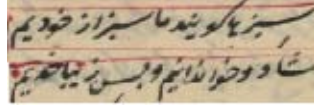 سبزها گویند ما سبز از خودیم
شاد و خندانیم و بس زیبا خدیم